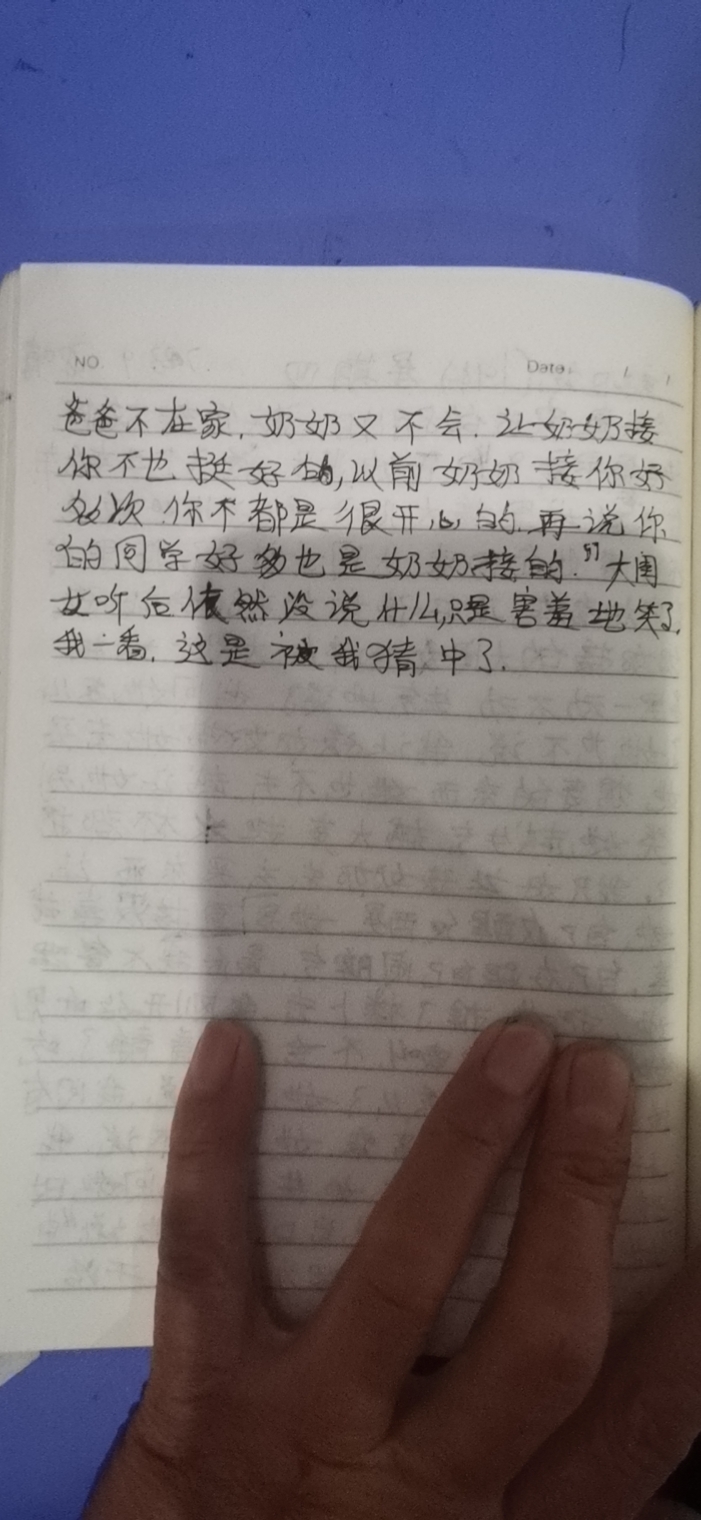 NO.
Date.
爸爸不在家，奶奶又不会．让奶奶接
你不也挺好的，以前奶奶接你好
多次．你不都是很开心的．再说你
的同学好多也是奶奶接的．"大闺
女听后依然没说什么，只是害羞地笑了．
我一看．这是被我猜中了．